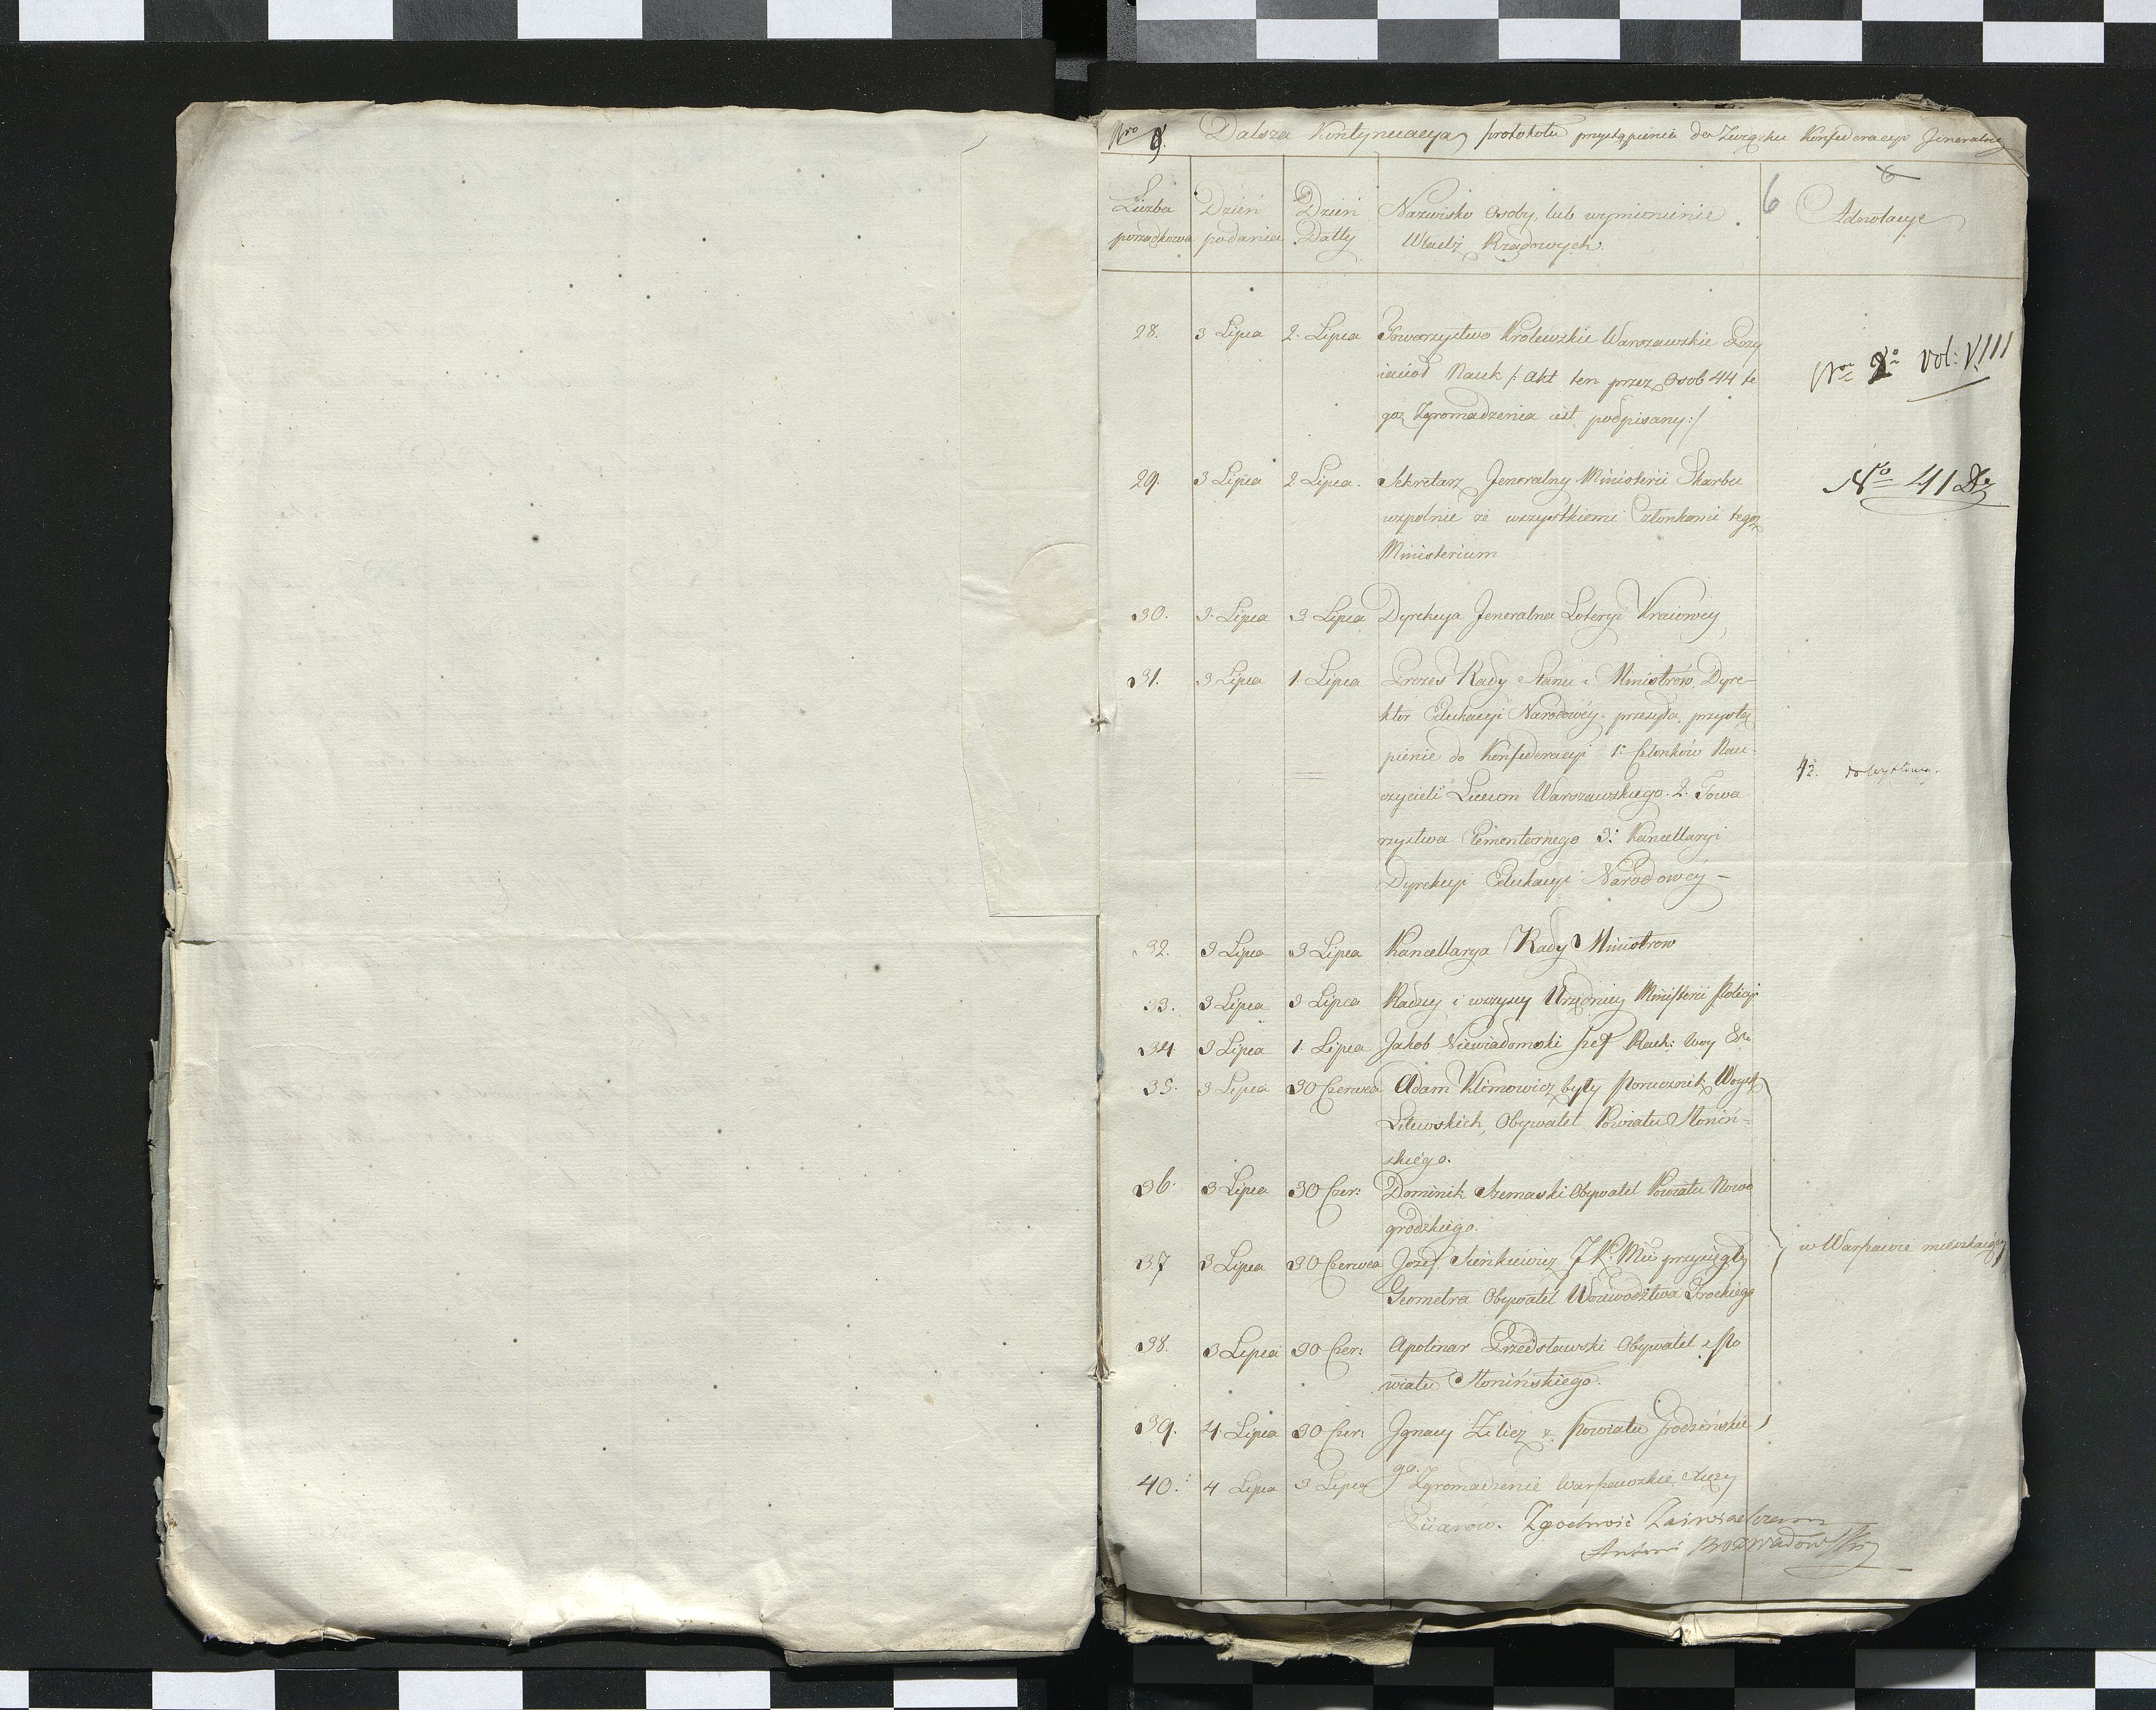 Nro 9. Dalsza Kontynuacya protokołu przystąpienia do Związku Konfederacyi Jeneralney
6
Liczba porządkowa
Dzień podania
Dzień Datty
Nazwisko Osoby, lub wymienienie
Władz Rządowych.
6
Adnotacye
28. 3 Lipca 2. Lipca Towarzystwo Krolewskie Warszawskie Przy
iaciół Nauk /: Akt ten przez Osob 44 te
goż Zgromadzenia iest podpisany :/
Nro 2o vol: VIII
29. 3 Lipca 2 Lipca. Sekretarz Jeneralny Ministerii Skarbu
wspolnie ze wszystkiemi Członkami tegoż
Ministerium
No 41
30. 3. Lipca 3. Lipca Dyrekcya Jeneralna Loteryi Kraiowéy
31. 3 Lipca 1. Lipca Prezes Rady Stanu i Ministrów, Dyre-
ktor Edukacyi Narodowéy. przesyła przystą
pienie do Konfederacyi 1o Członków Nau-
czycieli Liceum Warszawskiego. 2. Towa
rzystwa Elementarnego 3: Kancellaryi
Dyrekcyi Edukacyi Narodowéy –
42.
32. 3 Lipca 3 Lipca Kancellarya Rady Ministrow
33. 3 Lipca 3 Lipca Radcy i wszyscy Urzędnicy Ministerii Policyi
34 3 Lipca 1. Lipca Jakob Niewiadomski Szef Rach: Woy
35. 3 Lipca 30 Czerwca Adam Klimowicz były Porucznik Woysk
Litewskich, Obywatel Powiatu Słonim-
skiégo.
36. 3 Lipca 30 Czer: Dominik Szemaski Obywatel Powiatu Nowo
grodzkiego.
37 3 Lipca 30 Czerwca Jozef Sieńkiewicz J. K. Mci przysięgły
Geometra Obywatel Woiewodztwa Trockiego
w Warszawie mieszkaiący
38. 3 Lipca 30 Czer: Apolinar Przedsławski Obywatel z Po
wiatu Słonimskiego.
39. 4. Lipca 30 Czer: Jgnacy Zilicz z Powiatu Grodzińskie
go.
40. 4 Lipca 3 Lipca Zgromadzenie Warszawskie Xięży
Piiarow. Zgodność Zaświadczam
Antoni Rozwadowski